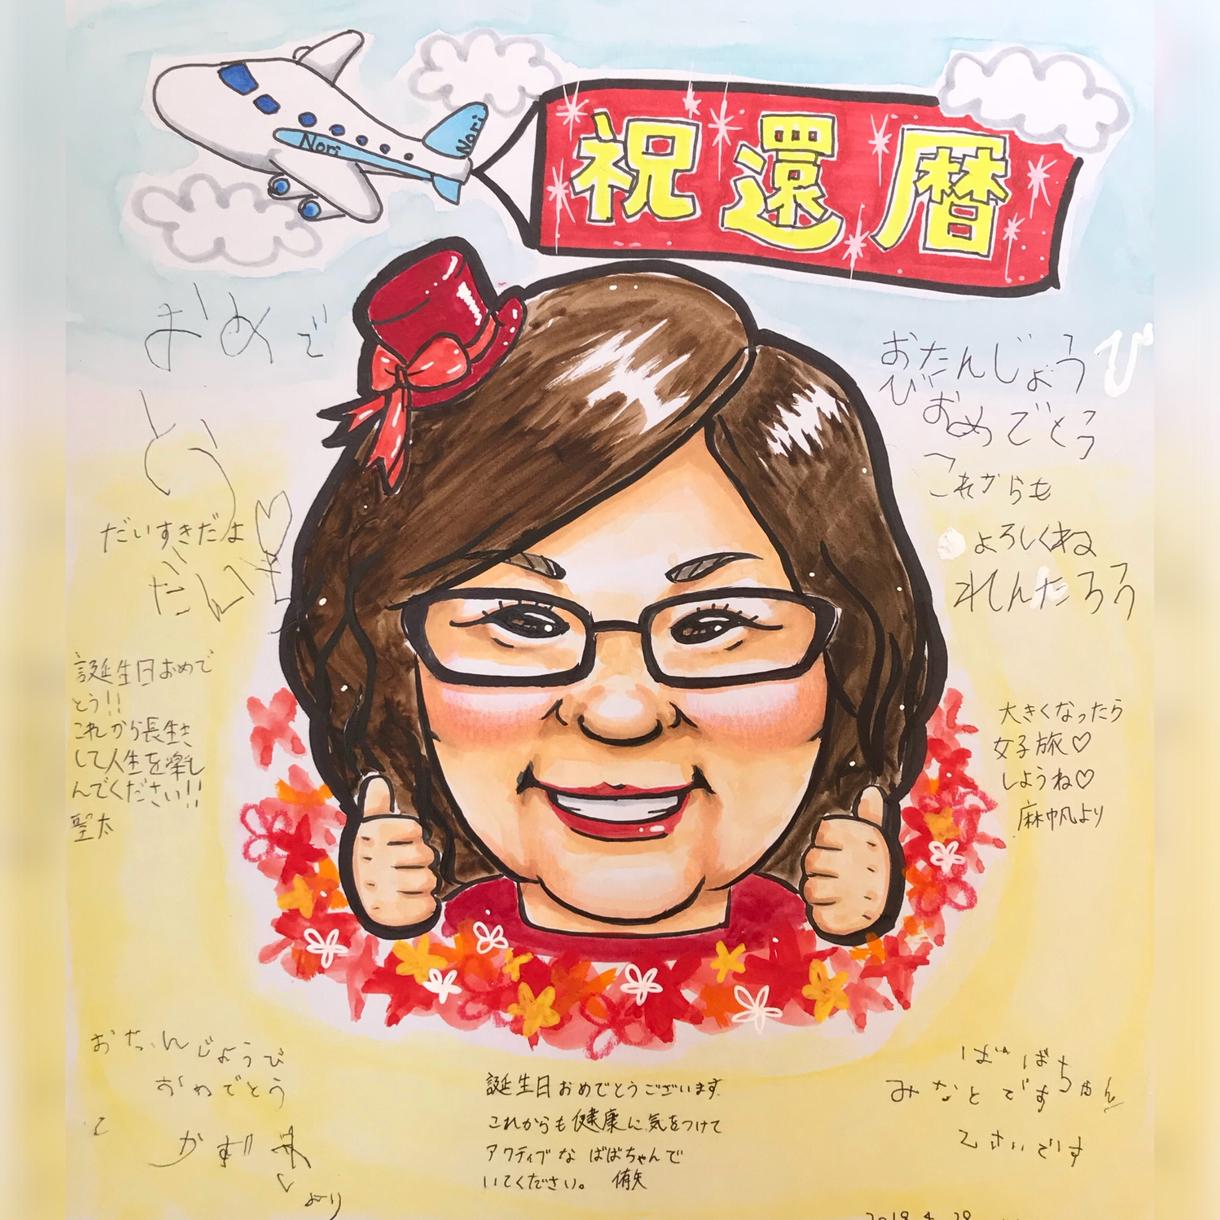 Nori
Nori
祝還暦
おめで
とう
だいすきだよ
誕生日おめで
とう!!
これから長生き
して人生を楽し
んでください!!
聖太
おたんじょう
び
び
おめでとう
これからも
よろしくね
れんたろう
大きくなったら
女子旅♡
しようね♡
麻帆より
おたんじょうび
おめでとう
かず
より
誕生日おめでとうございます
これからも健康に気をつけて
アクティブな ばばちゃんで
いてください。 侑矢
ばばちゃん
みなとです
2さいです
2018.4.28